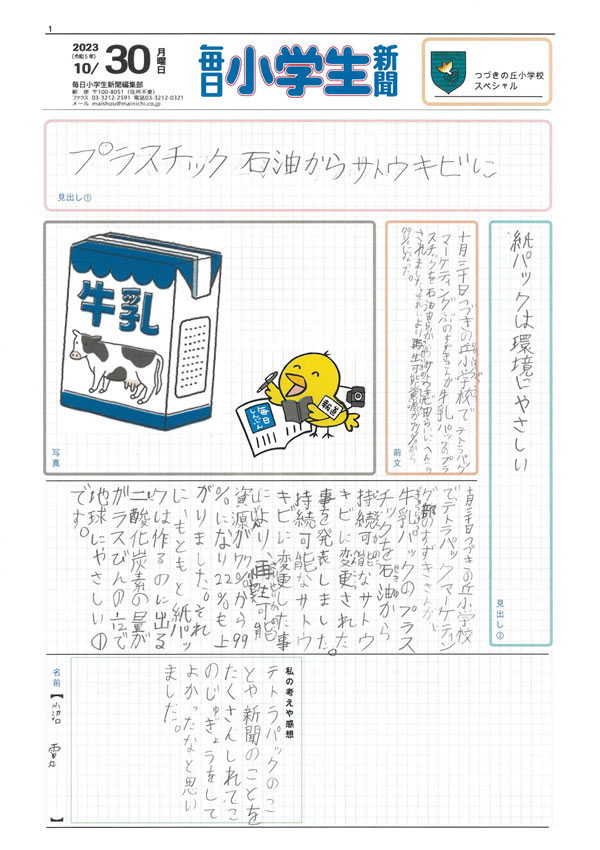 1
2023
(令和5年)
10/30
月曜日
毎日小学生新聞編集部
郵 便 〒100-8051 (住所不要)
ファクス 03-3212-2591 電話03-3212-0321
メール maishou@mainichi.co.jp
毎日小学生新聞
つづきの丘小学校
スペシャル
プラスチック 石油からサトウキビに
見出し①
紙パックは環境にやさしい
見出し②
十月三十日つづきの丘小学校で テトラパック
マーケティングぶのすずきさんが牛乳パックのプラ
スチックを石油
されました。それにより再生可能資源が77%から
99%になった。
前文
牛乳
毎日
しんぶん
報道
写真
十月三十日つづきの丘小学校
でテトラパックマーケティン
グ部のすずきさんが、
牛乳パックのプラス
チックを石油から
持続可能なサトウ
キビに変更された
事を発表しました。
持続可能なサトウ
キビに変更した事
により、再生可能
資源が77%から99
%になり22%も上
がりました。それ
にもともと紙パッ
クは作るのに出る
二酸化炭素の量が
ガラスびんの
地球にやさしい
です。
私の考えや感想
テトラパックのこ
とや新聞のことを
たくさんしれてこ
のじゅぎょうをして
よかったなと思い
ました。
名前【
】